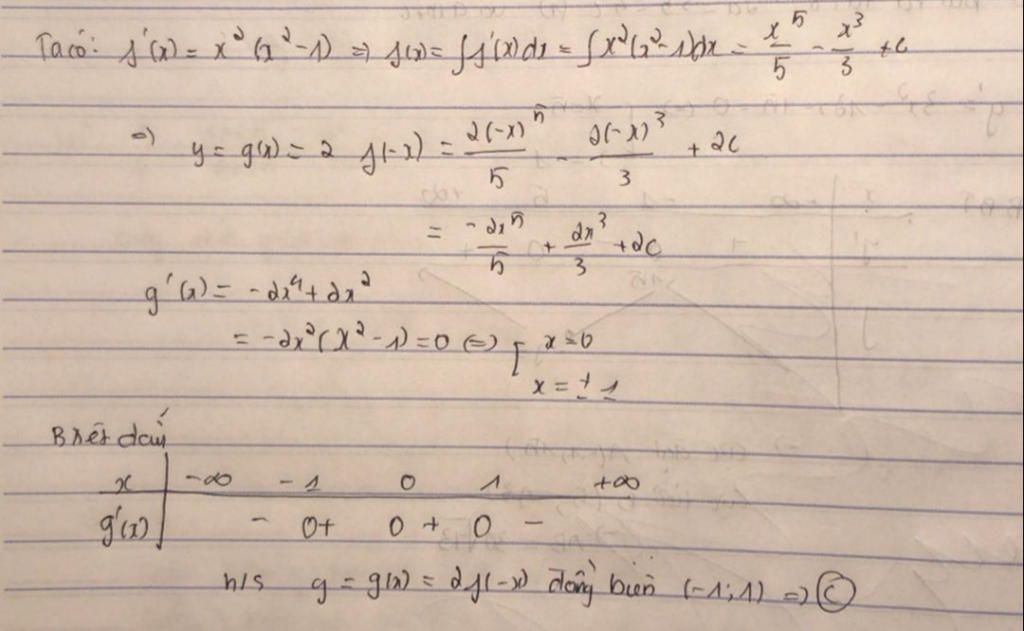 Ta có: f'(x) = x²(x²-1) ⇒ f(x) = ∫f'(x)dx = ∫x²(x²-1)dx = x⁵/5 - x³/3 + C
⇒ y = g(x) = 2 f(-x) = 2(-x)⁵/5 - 2(-x)³/3 + 2C
= -2x⁵/5 + 2x³/3 + 2C
g'(x) = -2x⁴ + 2x²
= -2x²(x²-1) = 0 ⇔ [ x = 0
x = ± 1
B xét dấu
x | -∞ -1 0 1 +∞
g'(x) | - 0 + 0 + 0 -
h/s y = g(x) = 2f(-x) đồng biến (-1; 1) ⇒ C